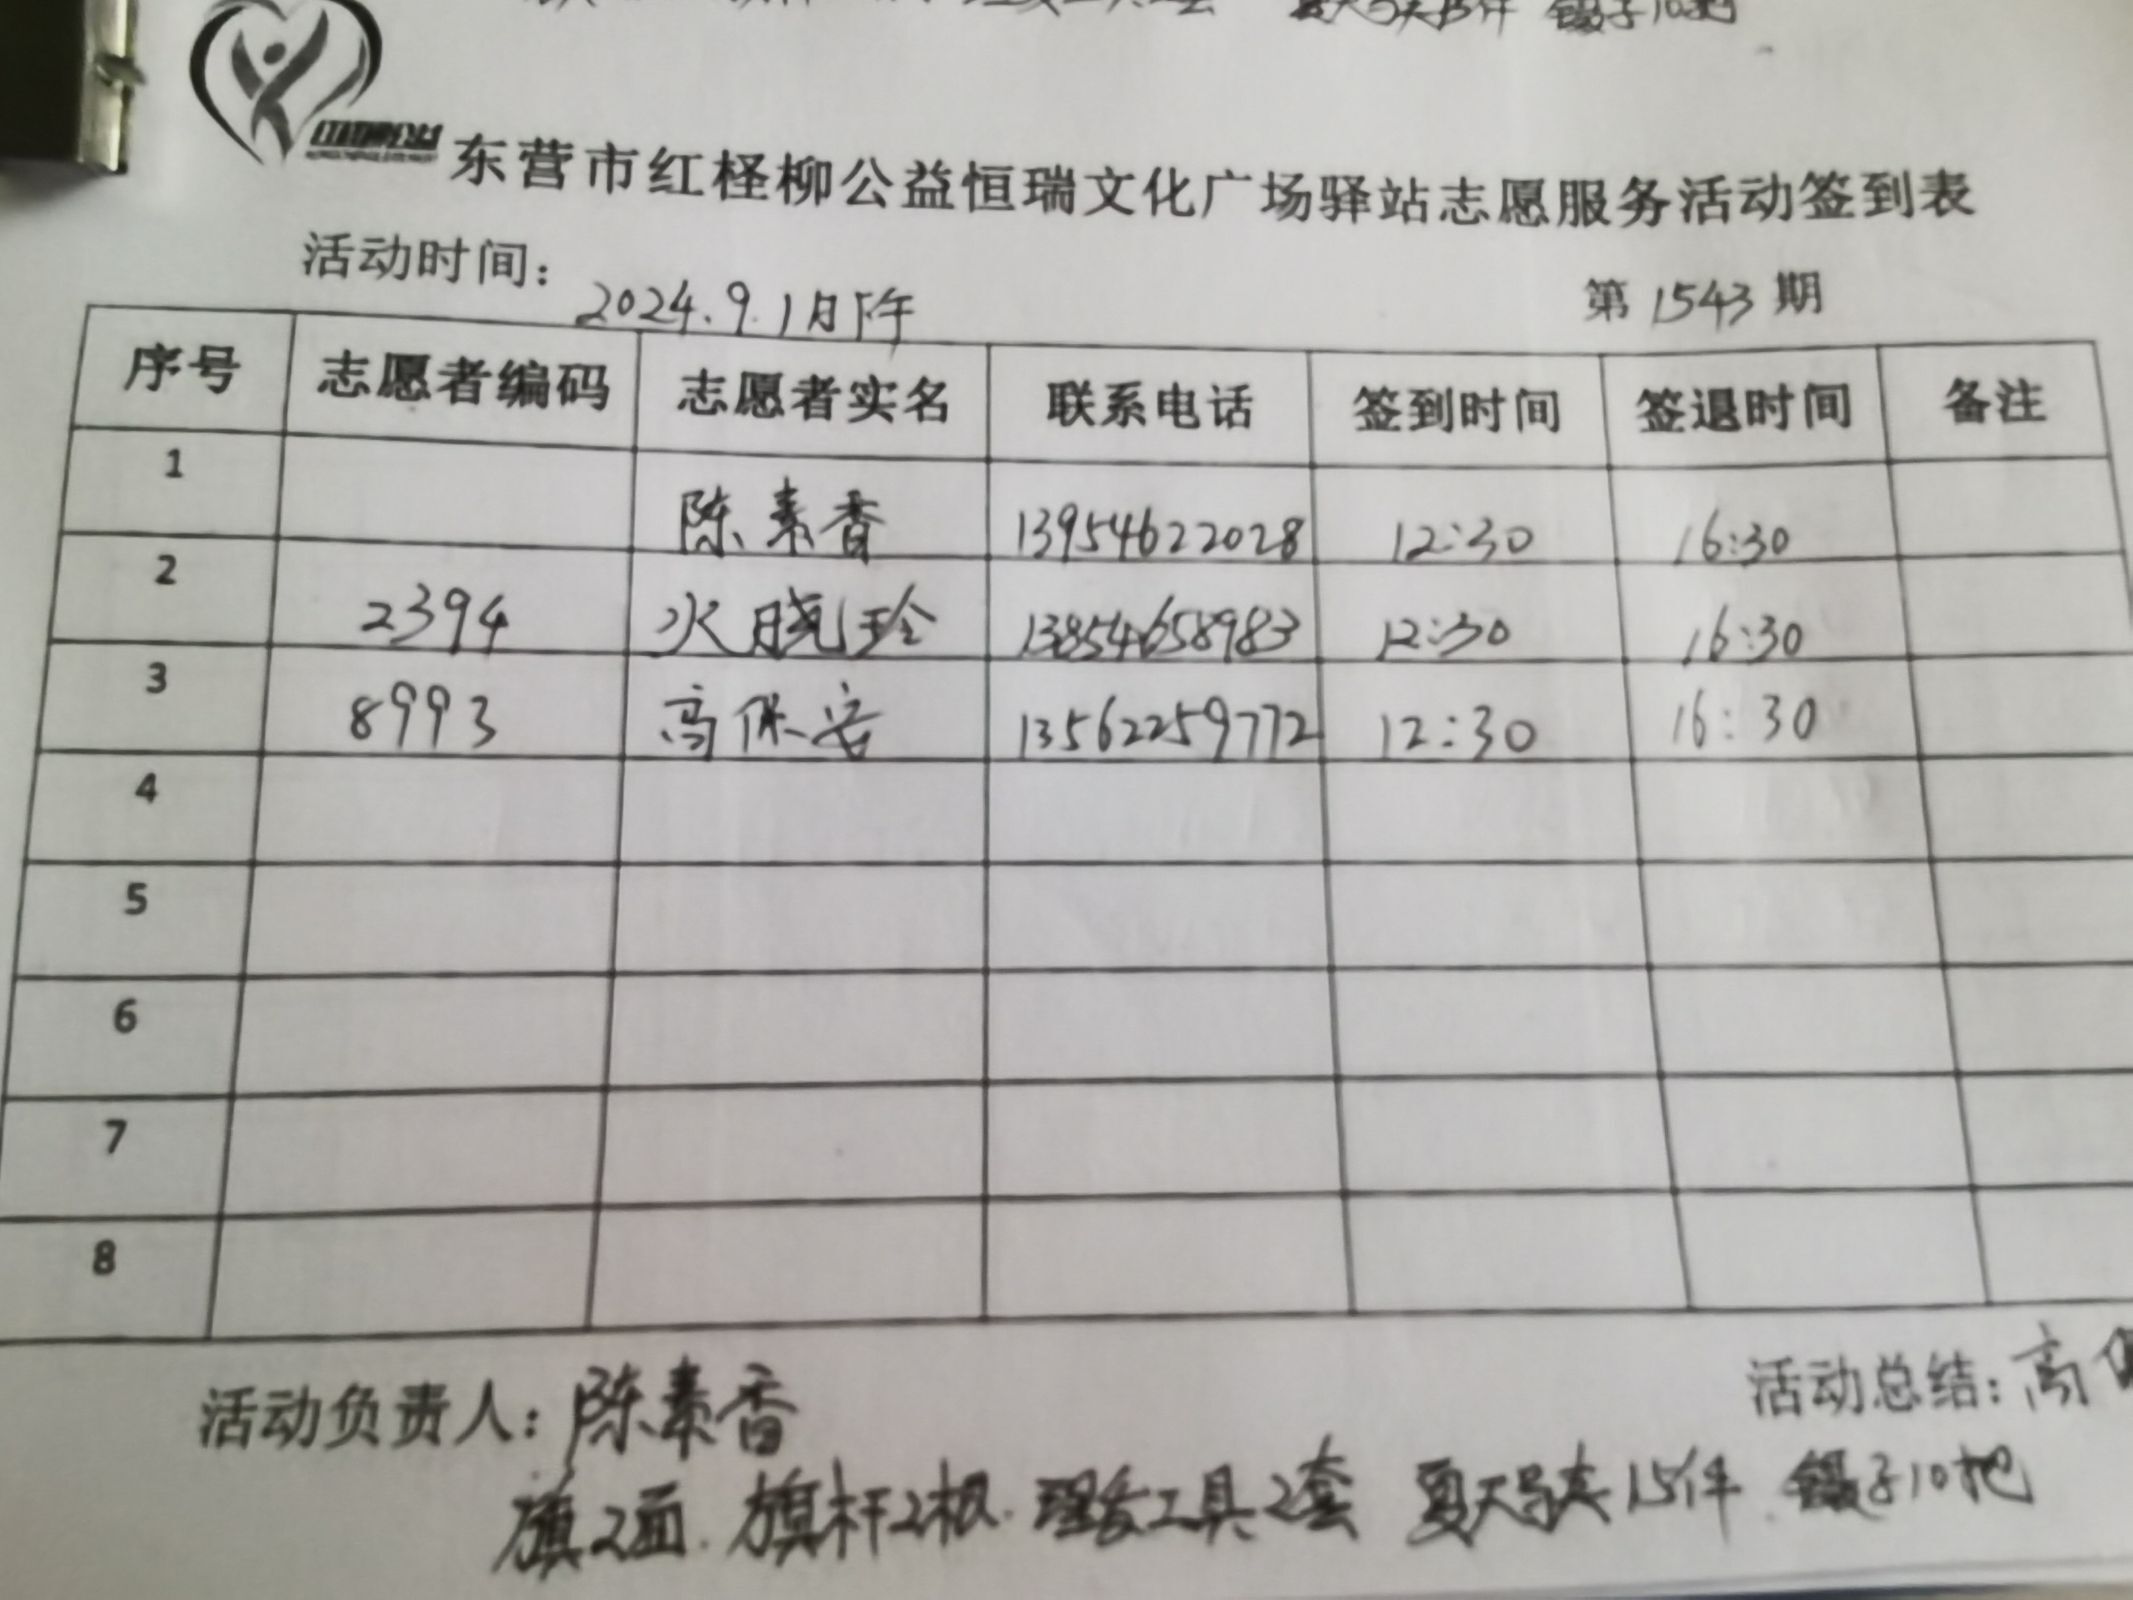 镊子10把
东营市红柽柳公益恒瑞文化广场驿站志愿服务活动签到表
活动时间： 2024.9.1日下午 第 1543 期
序号 志愿者编码 志愿者实名 联系电话 签到时间 签退时间 备注
1 陈素香 13954622028 12:30 16:30
2 2394 火晓玲 13854658983 12:30 16:30
3 8993 高保安 13562259772 12:30 16:30
4
5
6
7
8
活动负责人：陈素香 活动总结：高保
旗2面. 旗杆2根. 理发工具2套 夏天马夹15件 镊子10把